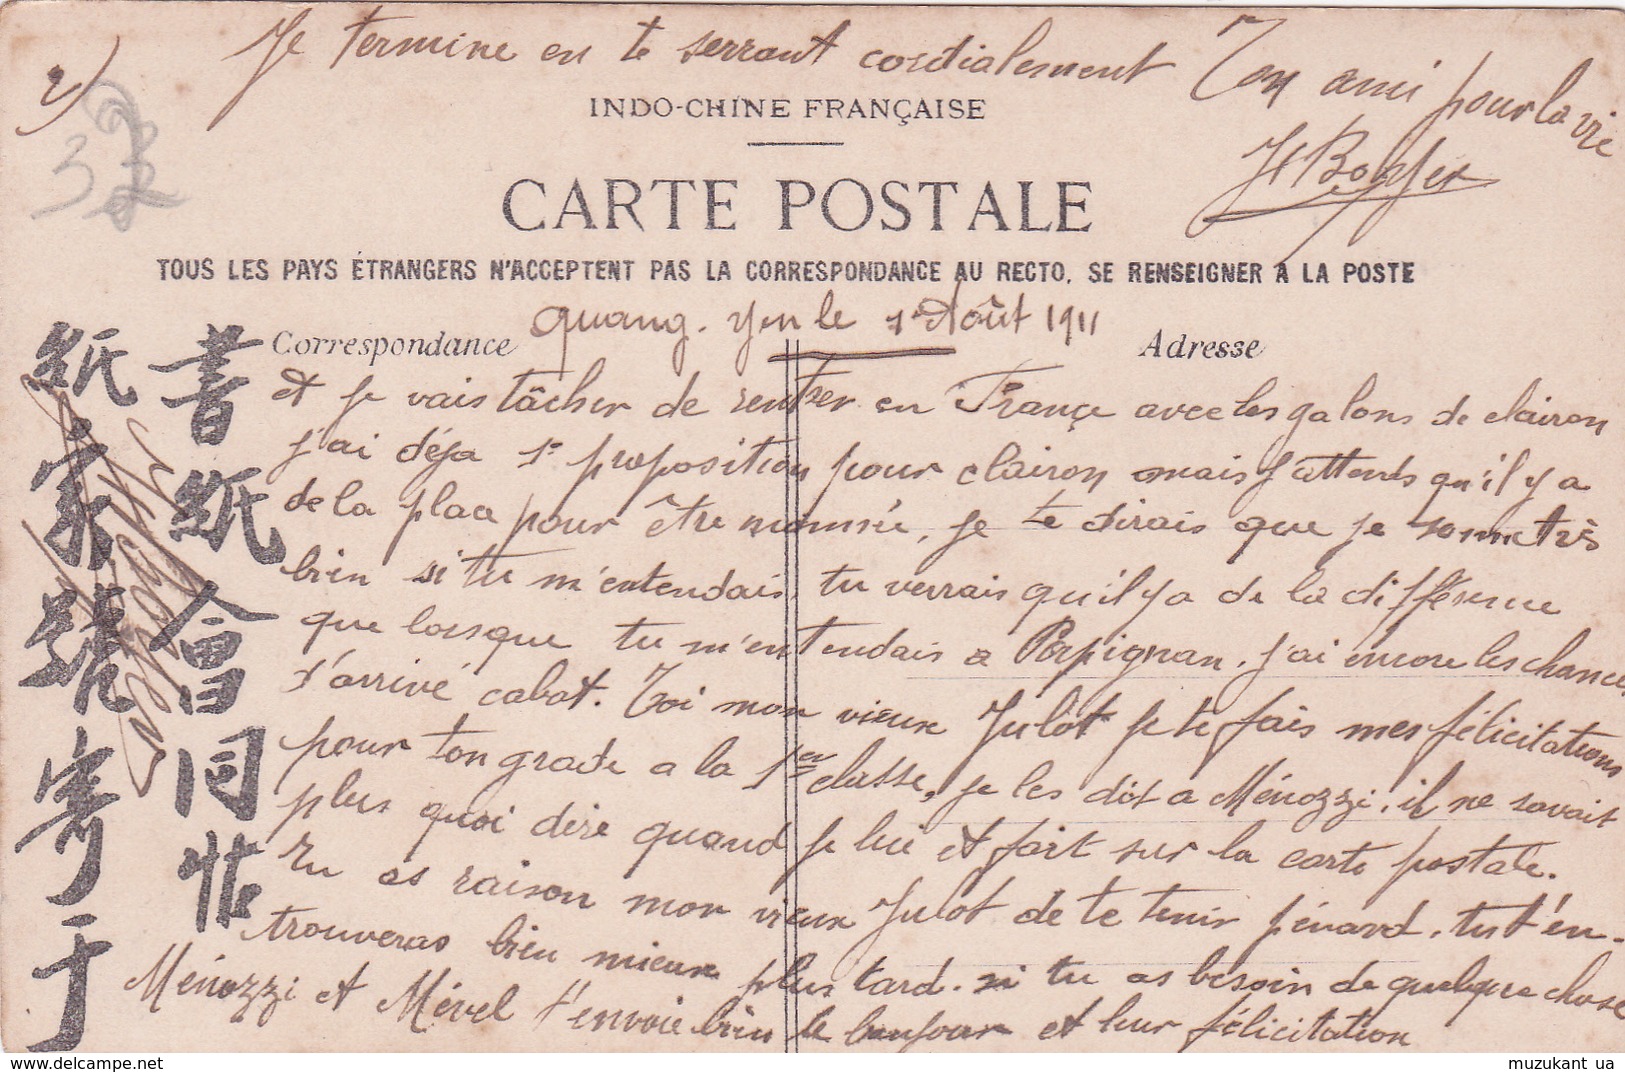 2)
Je termine en te serrant cordialement Ton ami pour la vie
INDO-CHINE FRANÇAISE
CARTE POSTALE
TOUS LES PAYS ÉTRANGERS N'ACCEPTENT PAS LA CORRESPONDANCE AU RECTO, SE RENSEIGNER A LA POSTE
Quang-Yen le 1er Août 1911
Correspondance
Adresse
et je vais tâcher de rentrer en France avec les galons de clairon
j'ai déja 1e proposition pour clairon mais j'attends qu'il y a
de la place pour être nommée, je te dirais que je sonne très
bien si tu m'entendais, tu verrais qu'il y a de la différence
que lorsque tu m'entendais a Perpignan. j'ai encore les chances
d'arrivé cabot. Toi mon vieux Julot je te fais mes félicitations
pour ton grade a la 1ere classe, je les dit a Ménozzi, il ne savait
plus quoi dire quand je lui et fait sur la carte postale.
Tu as raison mon vieux Julot de te tenir pénard, tu t'en
trouveras bien mieux plus tard. si tu as besoin de quelque chose
Ménozzi et Mével t'envoie bien le bonjour et leur félicitation
書紙會同
紙家號寄于
32
muzukant_ua